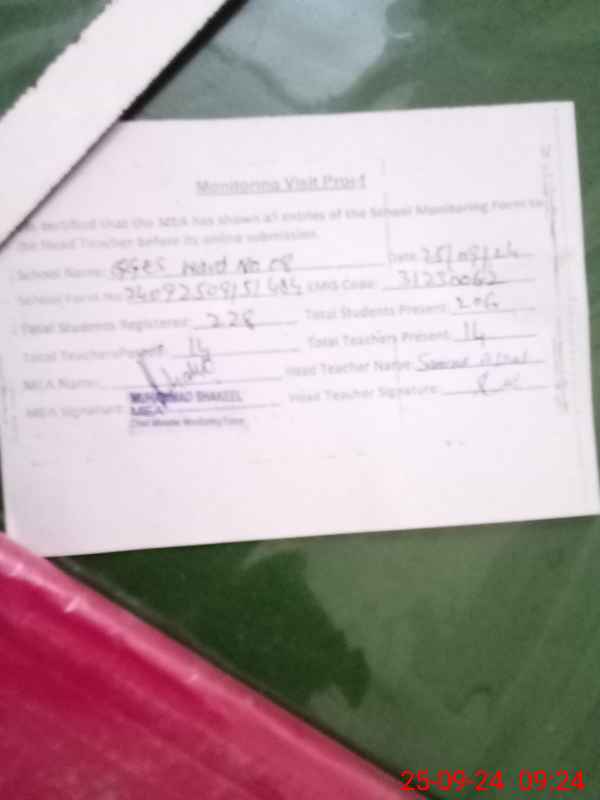 Monitoring Visit Proof
is certified that the MEA has shown all entries of the School Monitoring Form to
the Head Teacher before its online submission.
School Name: GGES Ward No 08 Date: 25/09/24
School Form No: EMIS Code: 31230062
Total Students Registered: 228 Total Students Present: 206
Total Teachers 14 Total Teachers Present: 14
MEA Name: Head Teacher Name:
MEA Signature: MUHAMMAD SHAKEEL Head Teacher Signature:
MEA
Chief Minister Monitoring Force
25-09-24 09:24